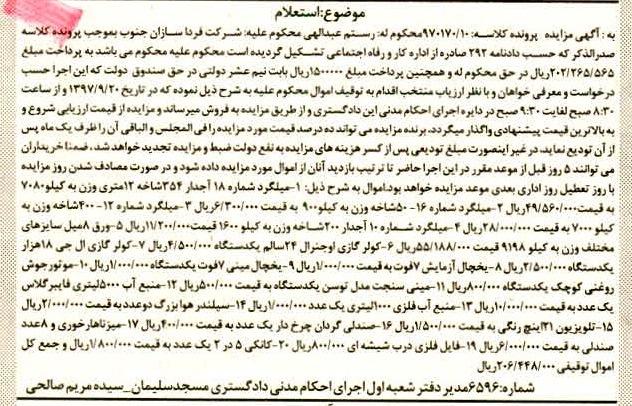 موضوع:استعلام
به : آگهی مزایده  پرونده کلاسه: ۹۷۰۱۷۰/۱۰محکوم له: رستم عبدالهی محکوم علیه: شرکت فردا سازان جنوب بموجب پرونده کلاسه
صدرالذکر که حسب دادنامه ۲۹۲ صادره از اداره کار و رفاه اجتماعی تشکیل گردیده است محکوم علیه محکوم می باشد به پرداخت مبلغ
۲۰۲/۲۶۵/۵۶۵ریال در حق محکوم له و همچنین پرداخت مبلغ ۱۵۰۰۰۰۰ریال بابت نیم عشر دولتی در حق صندوق دولت که این اجرا حسب
درخواست و معرفی خواهان و با نظر ارزیاب منتخب اقدام به توقیف اموال محکوم علیه به شرح ذیل نموده که در تاریخ ۱۳۹۷/۹/۲۰ و از ساعت
۸:۳۰ صبح لغایت ۹:۳۰ صبح در دایره اجرای احکام مدنی این دادگستری و از طریق مزایده به فروش میرساند و مزایده از قیمت ارزیابی شروع و
به بالاترین قیمت پیشنهادی واگذار میگردد. برنده مزایده می تواند ده درصد قیمت مورد مزایده را فی المجلس و الباقی آن را ظرف یک ماه پس
از آن تودیع نماید. در غیر اینصورت مبلغ تودیعی پس از کسر هزینه های مزایده به نفع دولت ضبط و مزایده تجدید خواهد شد. ضمنا خریداران
می توانند ۵ روز قبل از موعد مقرر در این اجرا حاضر تا ترتیب بازدید آنان از اموال مورد مزایده داده شود و در صورت مصادف شدن روز مزایده
با روز تعطیل روز اداری بعدی موعد مزایده خواهد بود.اموال به شرح ذیل: ۱-میلگرد شماره ۱۸ آجدار ۳۵۴شاخه ۱۲متری وزن به کیلو۷۰۸۰
به قیمت۴۹/۵۶۰/۰۰۰ریال ۲-میلگرد شماره ۱۶-۵۰شاخه وزن به کیلو۹۰۰ به قیمت۶/۳۰۰/۰۰۰ریال ۳-میلگرد شماره ۱۲-۴۰۰شاخه وزن به
کیلو ۷۰۰ به قیمت ۲۸/۰۰۰/۰۰۰ریال ۴-میلگرد شماره ۱۰ آجدار ۲۰۰شاخه وزن به کیلو ۱۶۰۰ قیمت ۱۱/۲۰۰/۰۰۰ریال ۵-ورق ۸میل سایزهای
مختلف وزن به کیلو ۹۱۹۸ قیمت ۵۵/۱۸۸/۰۰۰ریال ۶-کولر گازی اوجنرال ۲۴سالم یکدستگاه ۴/۵۰۰/۰۰۰ریال ۷-کولر گازی ال جی ۱۸هزار
یکدستگاه ۲/۵۰۰/۰۰۰ریال ۸-یخچال آزمایش ۷فوت به قیمت۱/۰۰۰/۰۰۰ریال ۹-یخچال مینی ۷فوت یکدستگاه ۱/۰۰۰/۰۰۰ریال ۱۰-موتورجوش
روغنی کوچک یکدستگاه ۸۰۰/۰۰۰ریال ۱۱-مینی سنجت مدل توسن یکدستگاه به قیمت ۵۰۰/۰۰۰ریال ۱۲-منبع آب ۵۰۰۰لیتری فایبرگلاس
یک عدد به قیمت۱۰/۰۰۰/۰۰۰ریال ۱۳-منبع آب فلزی ۱۰۰۰لیتری یک عدد ۱/۰۰۰/۰۰۰ریال ۱۴-سیلندر هوا بزرگ دوعدد به قیمت ۲/۰۰۰/۰۰۰ریال
۱۵-تلویزیون ۲۱اینچ رنگی به قیمت ۱/۵۰۰/۰۰۰ریال ۱۶-صندلی گردان چرخ دار یک عدد به قیمت ۴۰۰/۰۰۰ریال ۱۷-میزناهارخوری و ۸عدد
صندلی به قیمت ۶/۰۰۰/۰۰۰ریال ۱۹-فایل فلزی درب شیشه ای ۸۰۰/۰۰۰ریال ۲۰-کانکس ۵ در ۲ یک عدد به قیمت ۱/۸۰۰/۰۰۰ریال و جمع کل
اموال توقیفی ۲۰۶/۴۴۸/۰۰۰ریال
شماره:۶۵۹۶مدیر دفتر شعبه اول اجرای احکام مدنی دادگستری مسجدسلیمان_سیده مریم صالحی